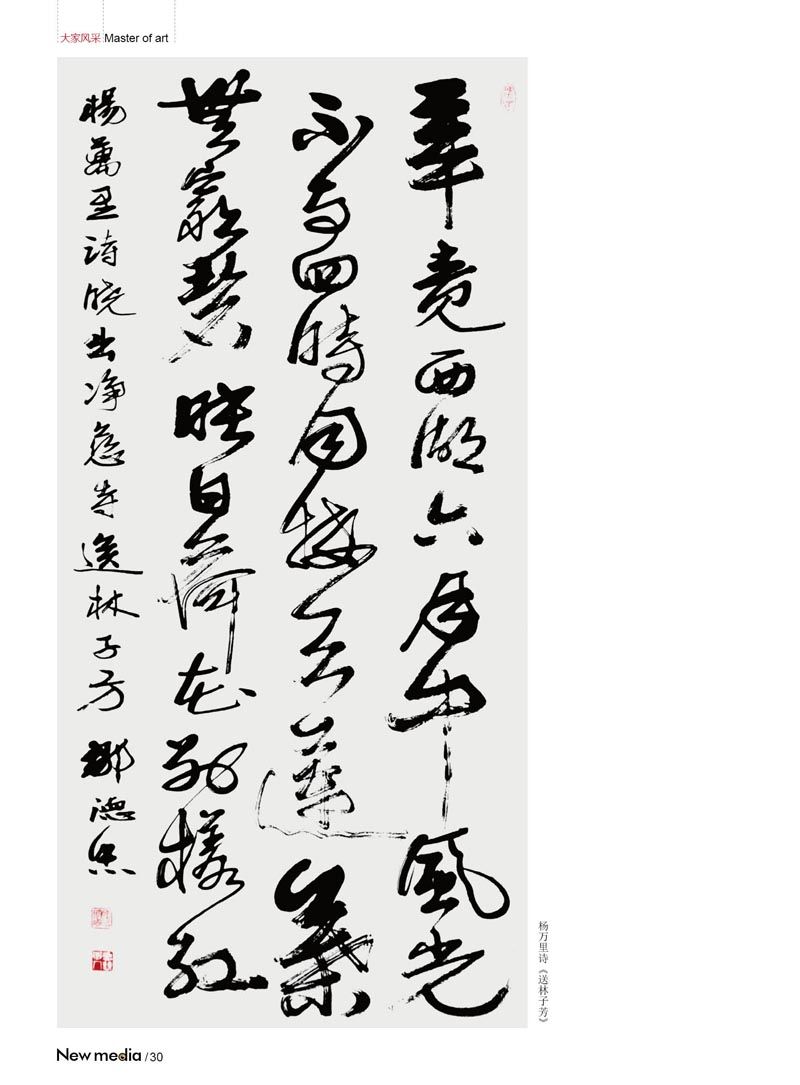 大家风采 Master of art
畢竟西湖六月中風光
不与四時同接天蓮葉
無窮碧映日荷花别樣紅
楊萬里詩曉出净慈寺送林子方
杨万里诗《送林子芳》
New media / 30